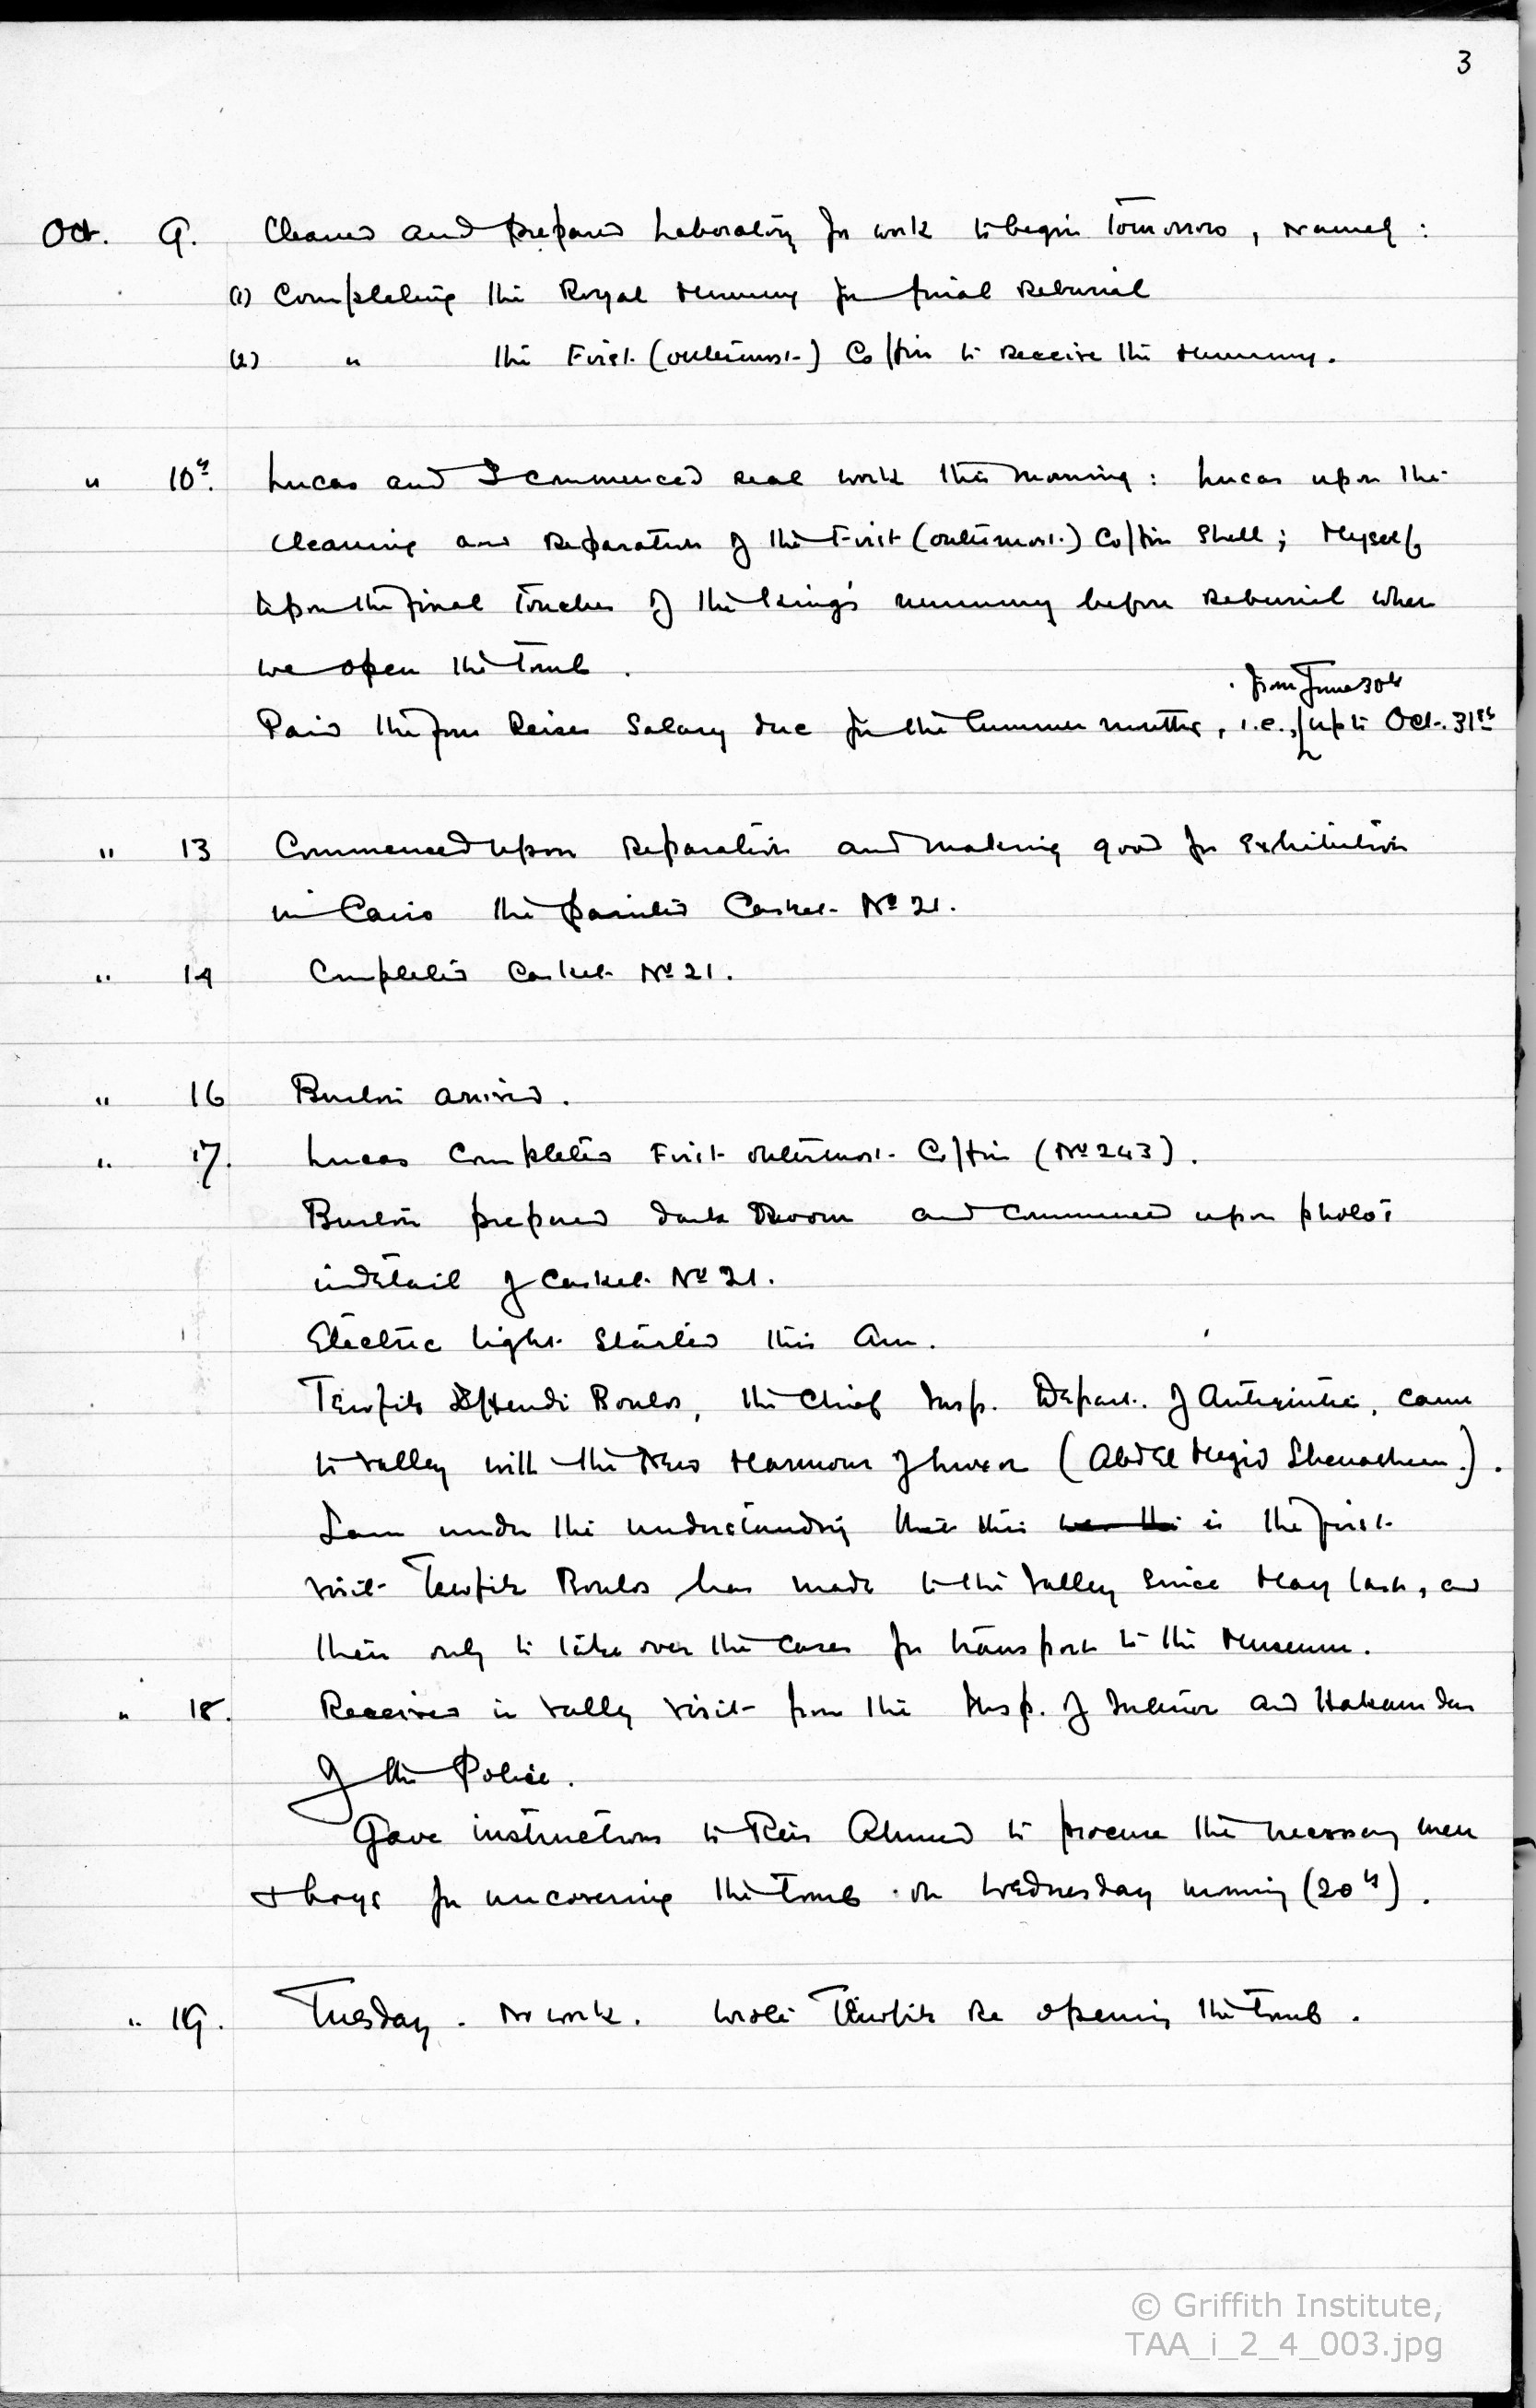 3
Oct. 9. Cleaned and prepared Laboratory for work to begin tomorrow, namely :
(1) Completing the Royal Mummy for final reburial
(2) " the First (outermost) Coffin to receive the mummy.
" 10th. Lucas and I commenced real work this morning : Lucas upon the
cleaning and reparation of the First (outermost) Coffin Shell; Myself
upon the final touches of the King's mummy before reburial when
we open the tomb.
from June 30th
Paid the four Reises Salary due for the Summer months, i.e., up to Oct. 31st
" 13 Commenced upon reparation and making good for exhibition
in Cairo the painted Casket No 21.
" 14 Completed Casket No 21.
" 16 Burton arrived.
" 17. Lucas completed First outermost Coffin (No 243).
Burton prepared dark room and commenced upon photos
in detail of Casket No 21.
Electric light started this am.
Tewfik Effendi Boulos, the Chief Insp. Depart. of Antiquities, came
to valley with the New Mamour of Luxor (Abd El Megid ).
I am under the understanding that this was the is the first
visit Tewfik Boulos has made to the Valley since May last, and
then only to take over the cases for transport to the Museum.
" 18. Received in valley visit from the Insp. of Interior and Hakamdar
of the Police.
Gave instructions to Reis Ahmed to procure the necessary men
& boys for uncovering the tomb on Wednesday morning (20th).
" 19. Tuesday. No work. Wrote Tewfik re opening the tomb.
© Griffith Institute,
TAA_i_2_4_003.jpg